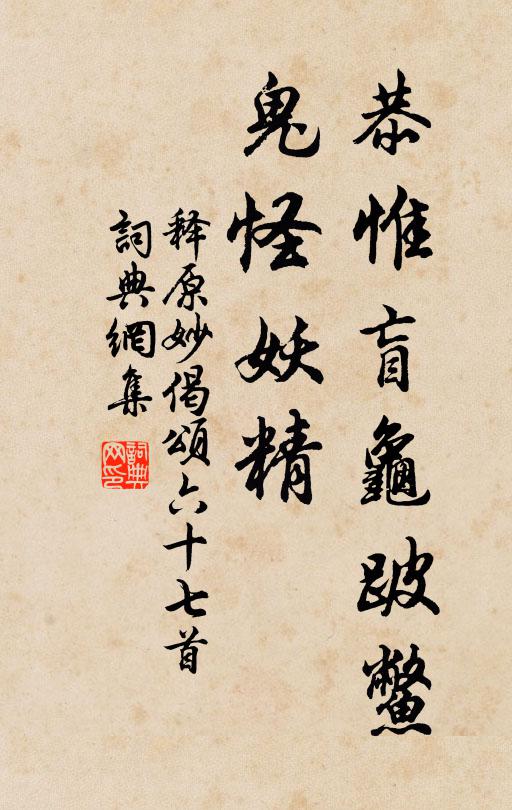 恭惟盲龜跛鱉
鬼怪妖精
释原妙偈頌六十七首
詞典網集
詞典网印